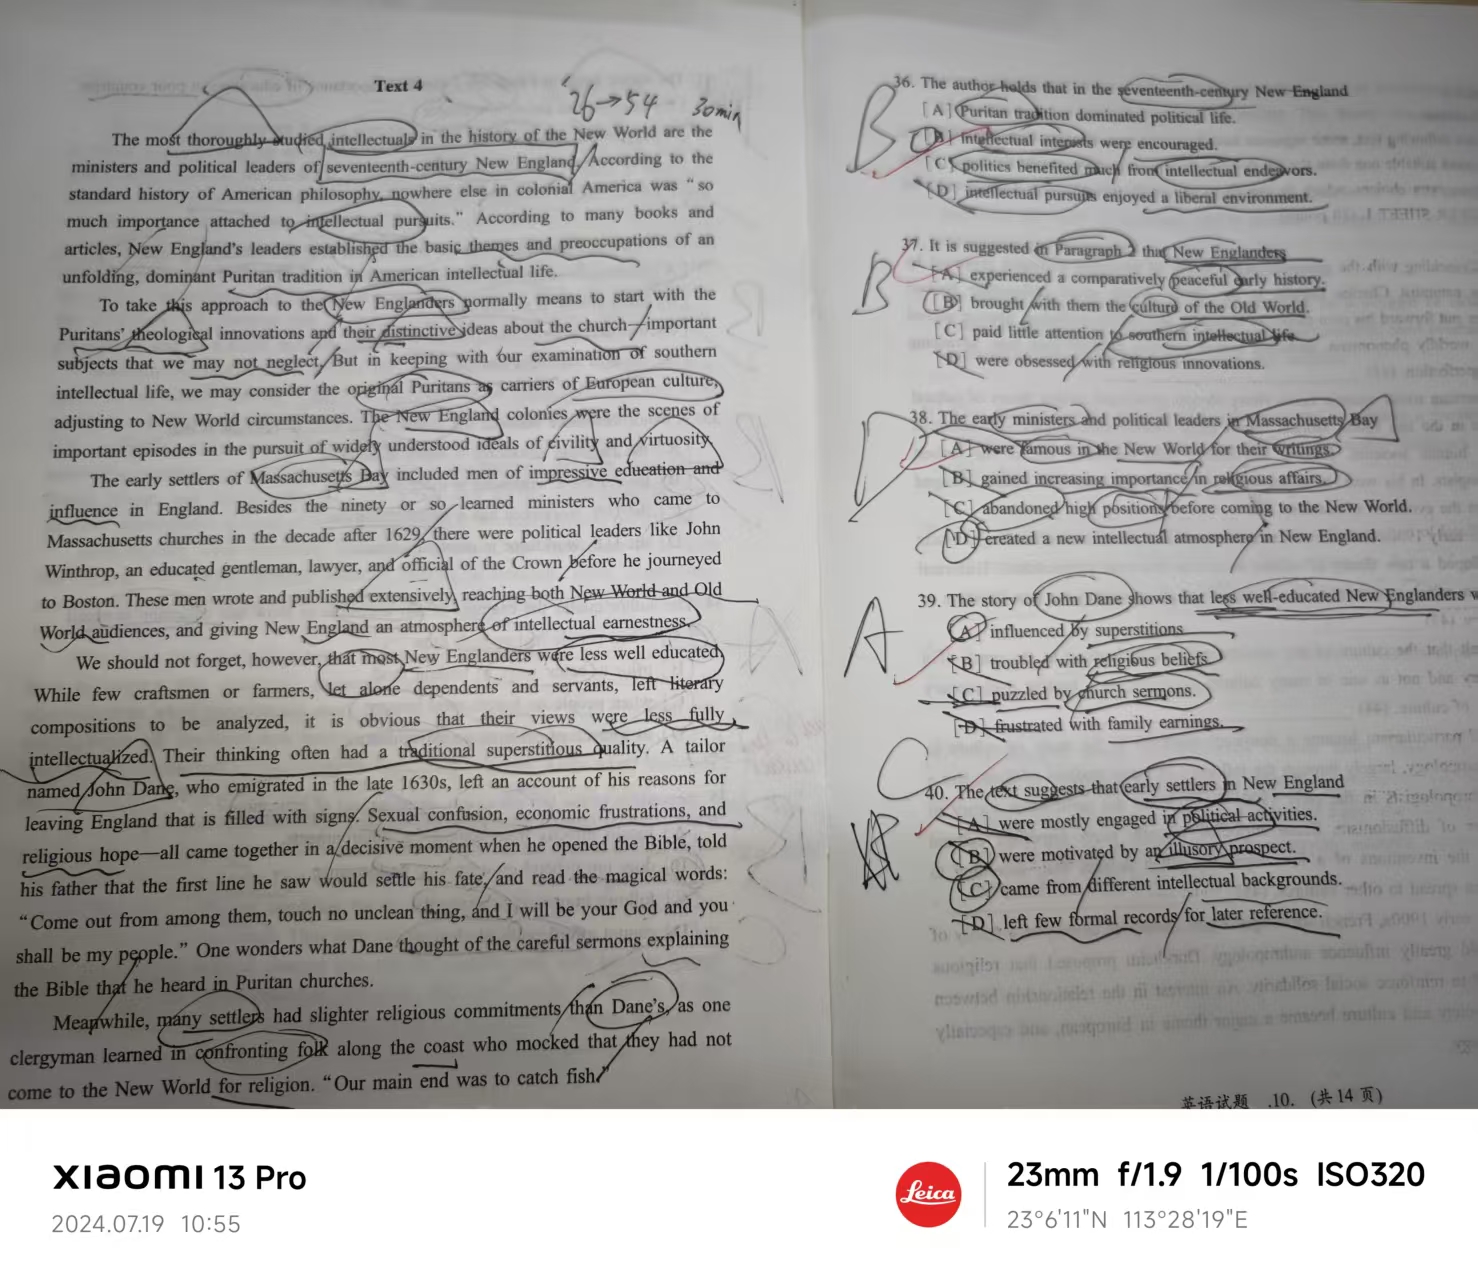 Text 4
26→54 30min
The most thoroughly studied intellectuals in the history of the New World are the
ministers and political leaders of seventeenth-century New England. According to the
standard history of American philosophy, nowhere else in colonial America was “so
much importance attached to intellectual pursuits.” According to many books and
articles, New England’s leaders established the basic themes and preoccupations of an
unfolding, dominant Puritan tradition in American intellectual life.
To take this approach to the New Englanders normally means to start with the
Puritans’ theological innovations and their distinctive ideas about the church—important
subjects that we may not neglect. But in keeping with our examination of southern
intellectual life, we may consider the original Puritans as carriers of European culture,
adjusting to New World circumstances. The New England colonies were the scenes of
important episodes in the pursuit of widely understood ideals of civility and virtuosity.
The early settlers of Massachusetts Bay included men of impressive education and
influence in England. Besides the ninety or so learned ministers who came to
Massachusetts churches in the decade after 1629, there were political leaders like John
Winthrop, an educated gentleman, lawyer, and official of the Crown before he journeyed
to Boston. These men wrote and published extensively, reaching both New World and Old
World audiences, and giving New England an atmosphere of intellectual earnestness.
We should not forget, however, that most New Englanders were less well educated.
While few craftsmen or farmers, let alone dependents and servants, left literary
compositions to be analyzed, it is obvious that their views were less fully
intellectualized. Their thinking often had a traditional superstitious quality. A tailor
named John Dane, who emigrated in the late 1630s, left an account of his reasons for
leaving England that is filled with signs. Sexual confusion, economic frustrations, and
religious hope—all came together in a decisive moment when he opened the Bible, told
his father that the first line he saw would settle his fate, and read the magical words:
“Come out from among them, touch no unclean thing, and I will be your God and you
shall be my people.” One wonders what Dane thought of the careful sermons explaining
the Bible that he heard in Puritan churches.
Meanwhile, many settlers had slighter religious commitments than Dane’s, as one
clergyman learned in confronting folk along the coast who mocked that they had not
come to the New World for religion. “Our main end was to catch fish.”
B
36. The author holds that in the seventeenth-century New England
[A] Puritan tradition dominated political life.
[B] intellectual interests were encouraged.
[C] politics benefited much from intellectual endeavors.
[D] intellectual pursuits enjoyed a liberal environment.
B
37. It is suggested in Paragraph 2 that New Englanders
[A] experienced a comparatively peaceful early history.
[B] brought with them the culture of the Old World.
[C] paid little attention to southern intellectual life.
[D] were obsessed with religious innovations.
D
38. The early ministers and political leaders in Massachusetts Bay
[A] were famous in the New World for their writings.
[B] gained increasing importance in religious affairs.
[C] abandoned high positions before coming to the New World.
[D] created a new intellectual atmosphere in New England.
A
39. The story of John Dane shows that less well-educated New Englanders w
[A] influenced by superstitions
[B] troubled with religious beliefs
[C] puzzled by church sermons.
[D] frustrated with family earnings.
C
40. The text suggests that early settlers in New England
[A] were mostly engaged in political activities.
[B] were motivated by an illusory prospect.
[C] came from different intellectual backgrounds.
[D] left few formal records for later reference.
英语试题 .10. (共14页)
XIAOMI 13 Pro
2024.07.19 10:55
Leica
23mm f/1.9 1/100s ISO320
23°6'11"N 113°28'19"E